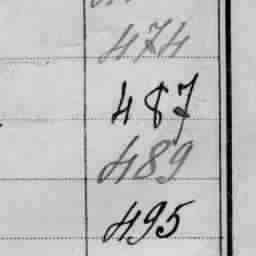 474
487
489
495